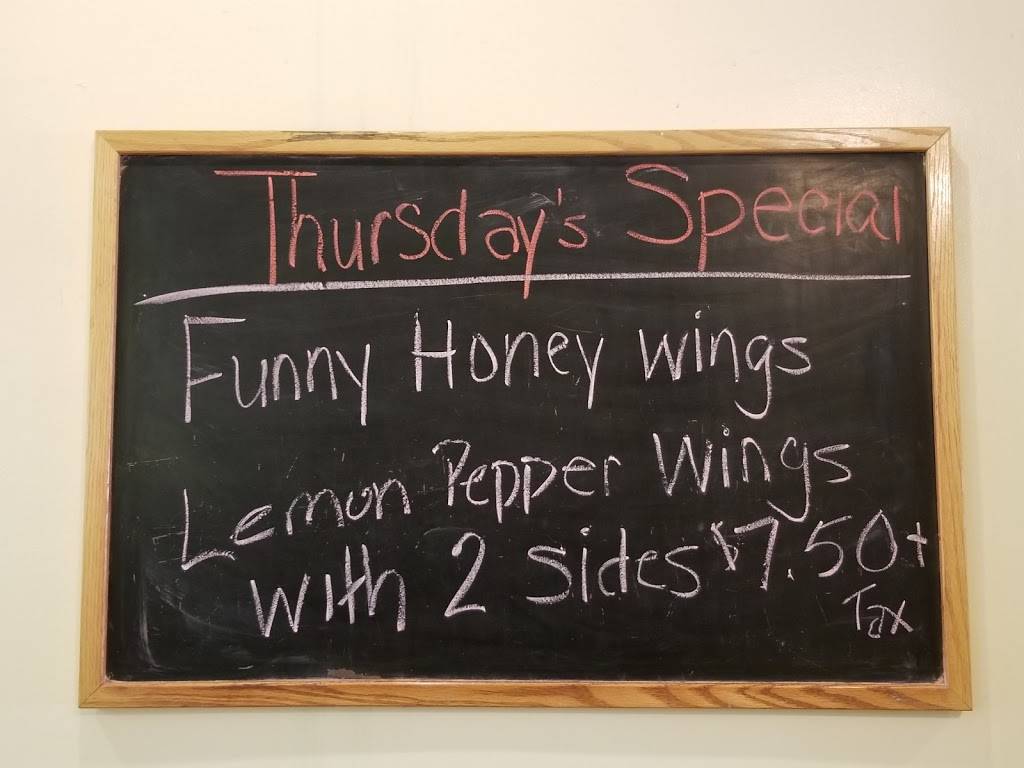 Thursday's Special
Funny Honey wings
Lemon Pepper Wings
with 2 sides $7.50+
Tax